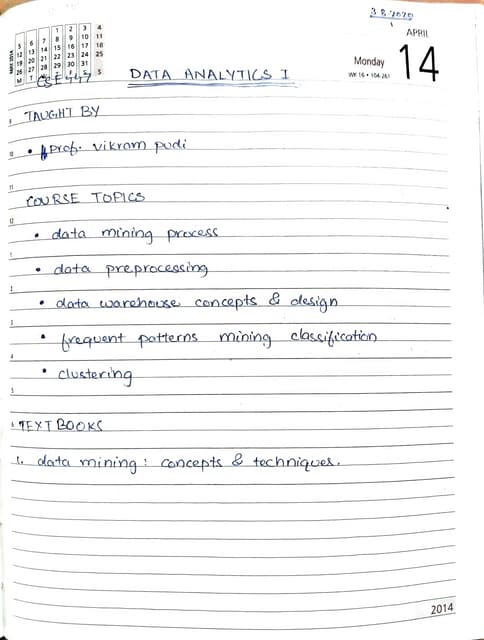 3 8 2020
APRIL
Monday 14
WK 16 • 104-261
MAY 2014
5 12 19 26 M
6 13 20 27 T
7 14 21 28
1 8 15 22 29
2 9 16 23 30
3 10 17 24 31 S
4 11 18 25 S
CSE 447
DATA ANALYTICS I
TAUGHT BY
• prof. vikram pudi
COURSE TOPICS
• data mining process
• data preprocessing
• data warehouse concepts & design
• frequent patterns mining classification
• clustering
TEXT BOOKS
1. data mining: concepts & techniques.
9
10
11
12
1
2
3
4
5
6
2014